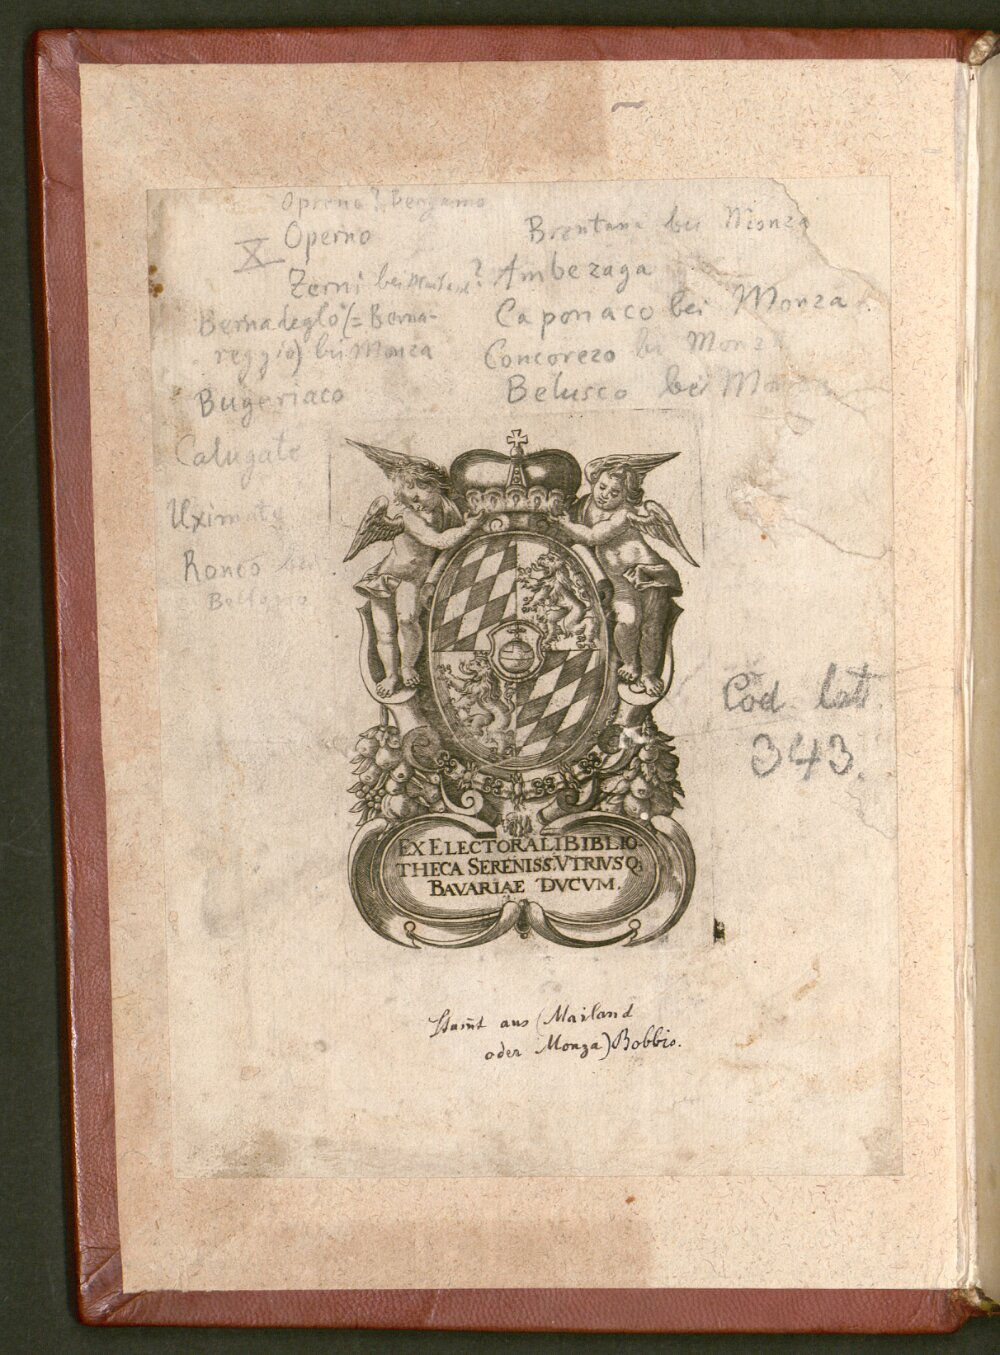 Opreno? Bergamo
X Operno
Zerni bei ?
Bernadeglo (= Berna-
reggio) bei Monza
Bugeriaco
Calugate
Uximate
Ronco
Brentana bei Monza
Ambezaga
Caponaco bei Monza
Concorezo bei Monza
Belusco bei Monza
Cod. lat.
343.
EX ELECTORALI BIBLIO-
THECA SERENISS. VTRIVSQ;
BAVARIAE DVCVM.
Stam̅t aus (Mailand
oder Monza) Bobbio.